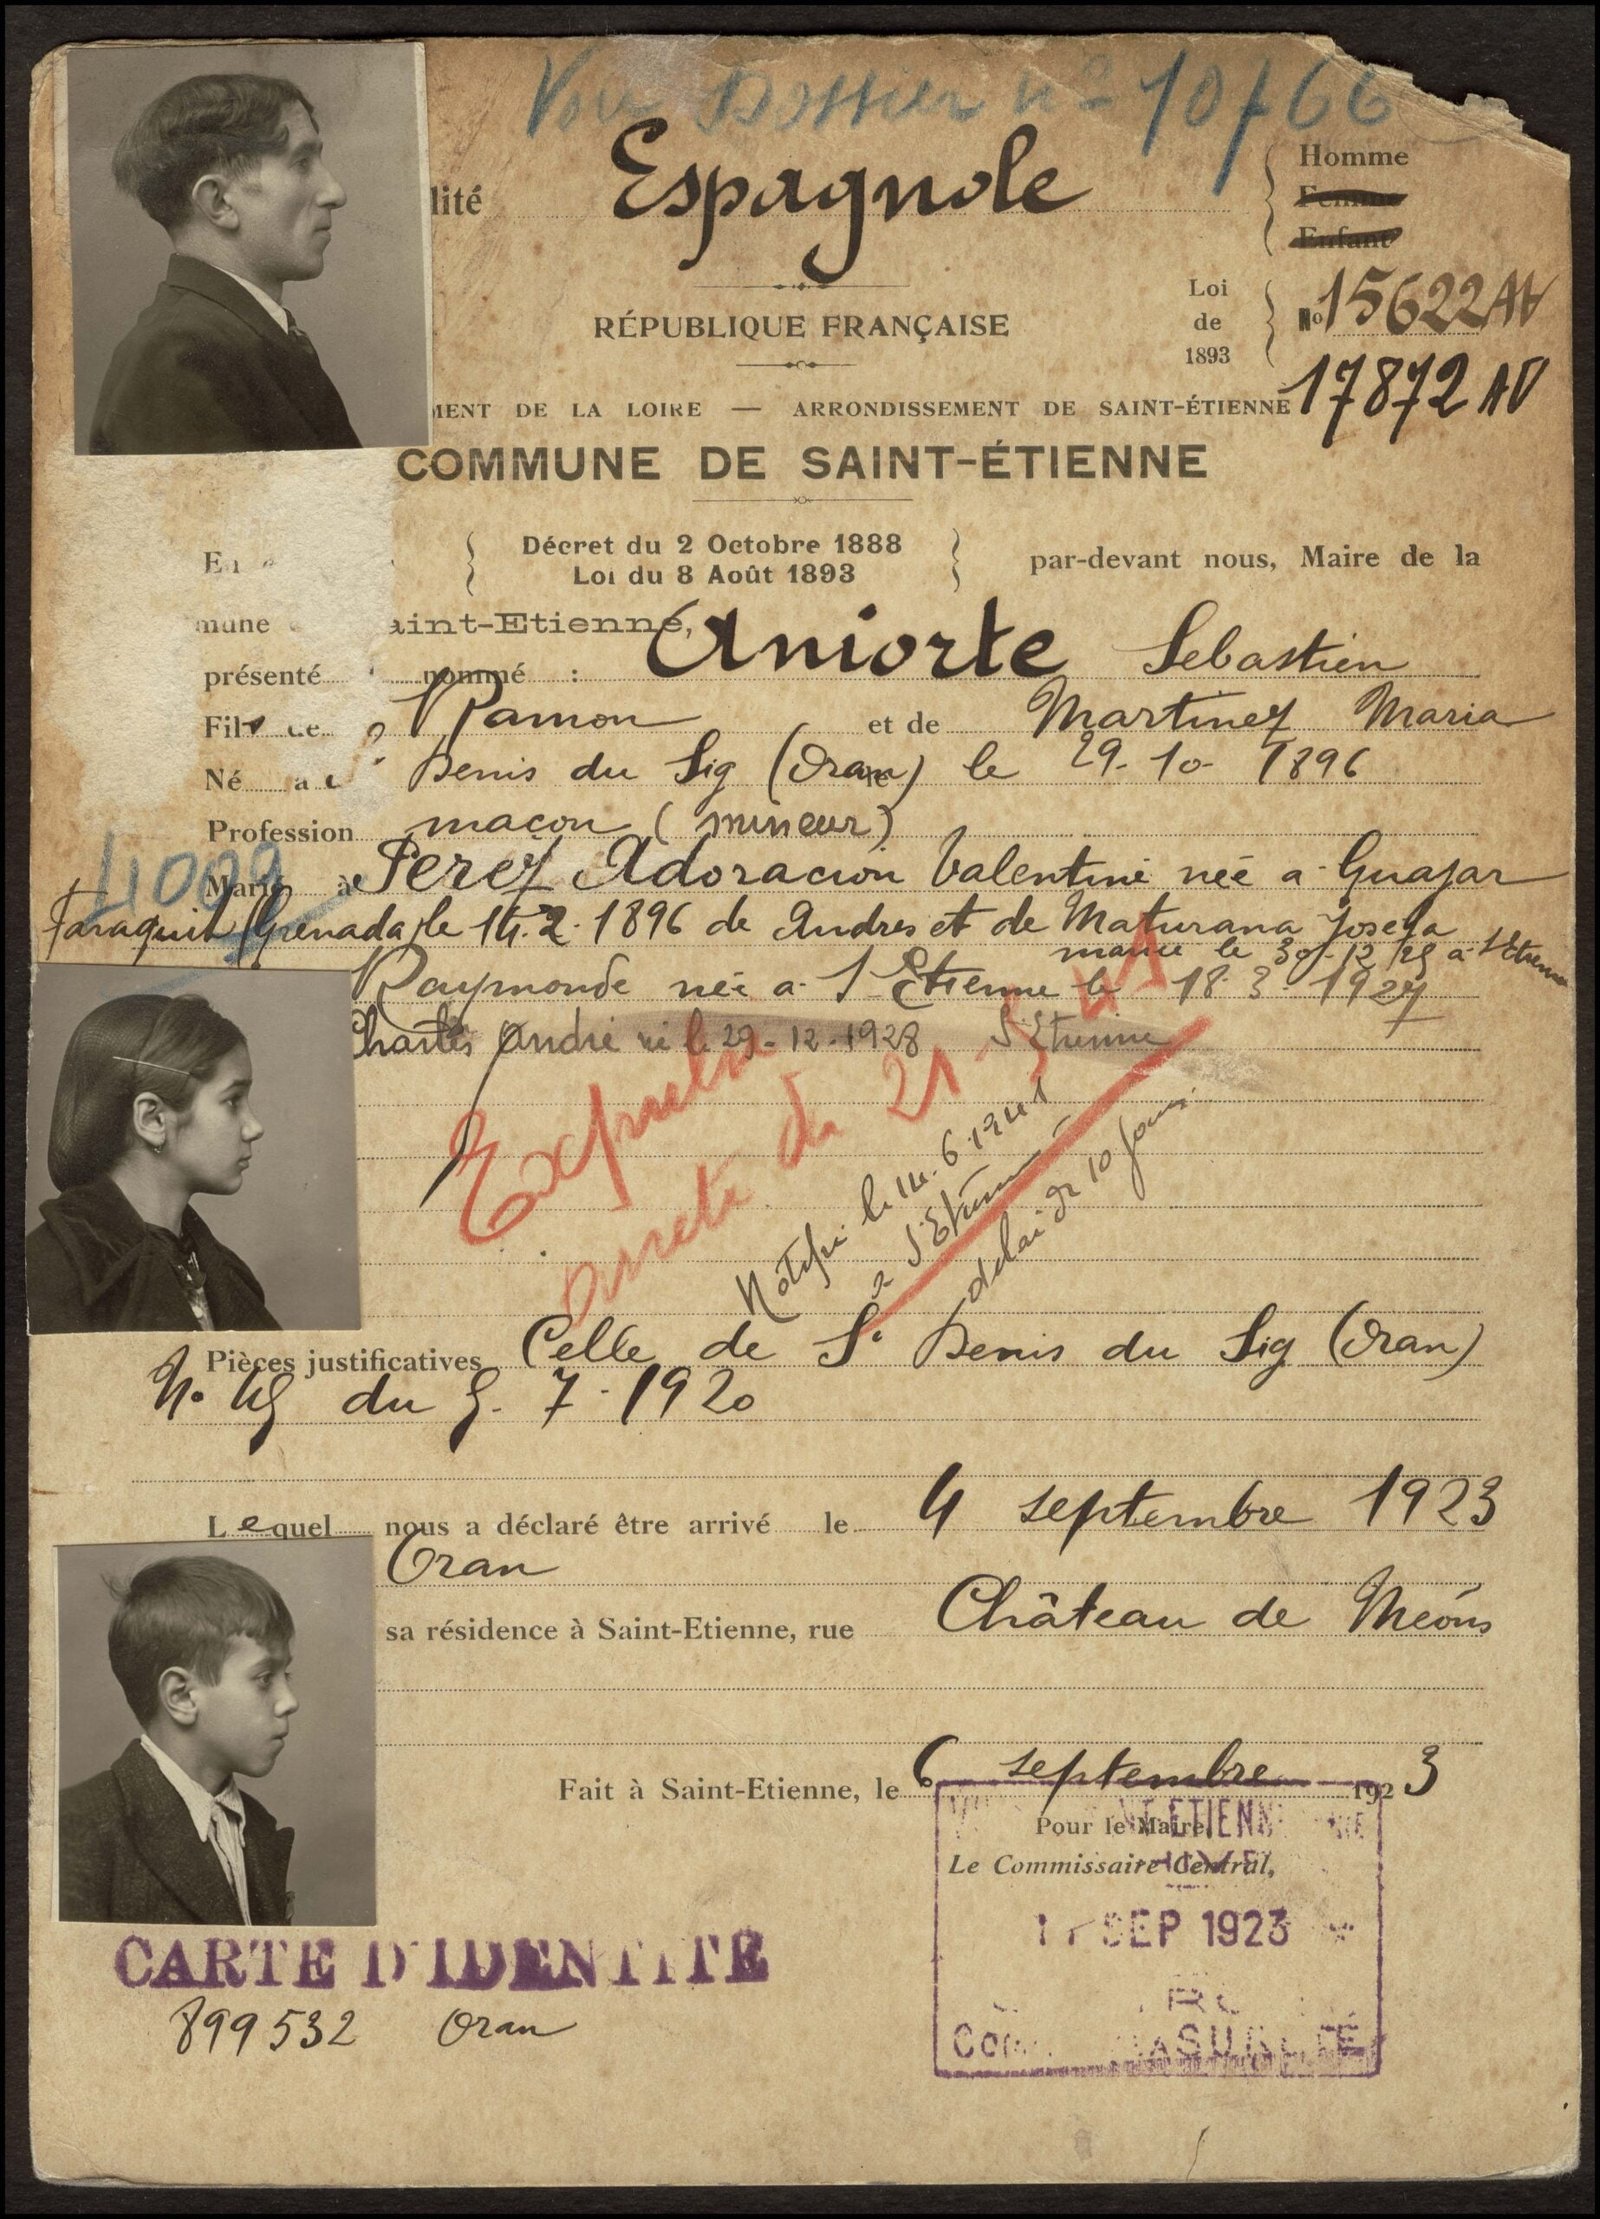 Voir Dossier nº 10766
lité Espagnole
Homme
Femme
Enfant
RÉPUBLIQUE FRANÇAISE
Loi de 1893
No 15622
17872
MENT DE LA LOIRE — ARRONDISSEMENT DE SAINT-ÉTIENNE
COMMUNE DE SAINT-ÉTIENNE
En
Décret du 2 Octobre 1888
Loi du 8 Août 1893
par-devant nous, Maire de la
mune aint-Etienne,
présenté nommé : Aniorte Sebastien
Fils de Ramon et de Martinez Maria
Né à Denis du Sig (Oran) le 29-10-1896
Profession maçon (mineur)
4009
Marié à Perez Adoracion Valentine née à Guajar
Faraguit (Grenada) le 14.2.1896 de Andres et de Maturana Josefa
mariée le 30-12-25 à St Etienne
Raymonde née à St Etienne le 18.3.1927
Charles André né le 29-12-1928 St Etienne
Expulsé
arreté du 21-5-41
Notifié le 14.6.1941
à St Etienne
delai de 10 jours
Pièces justificatives Celle de St Denis du Sig (Oran)
No 45 du 5.7.1920
Lequel nous a déclaré être arrivé le 4 septembre 1923
Oran
sa résidence à Saint-Etienne, rue Château de Méons
Fait à Saint-Etienne, le 6 septembre 1923
Pour le Maire,
Le Commissaire Central,
SEP 1923
CARTE D'IDENTITÉ
899532 Oran